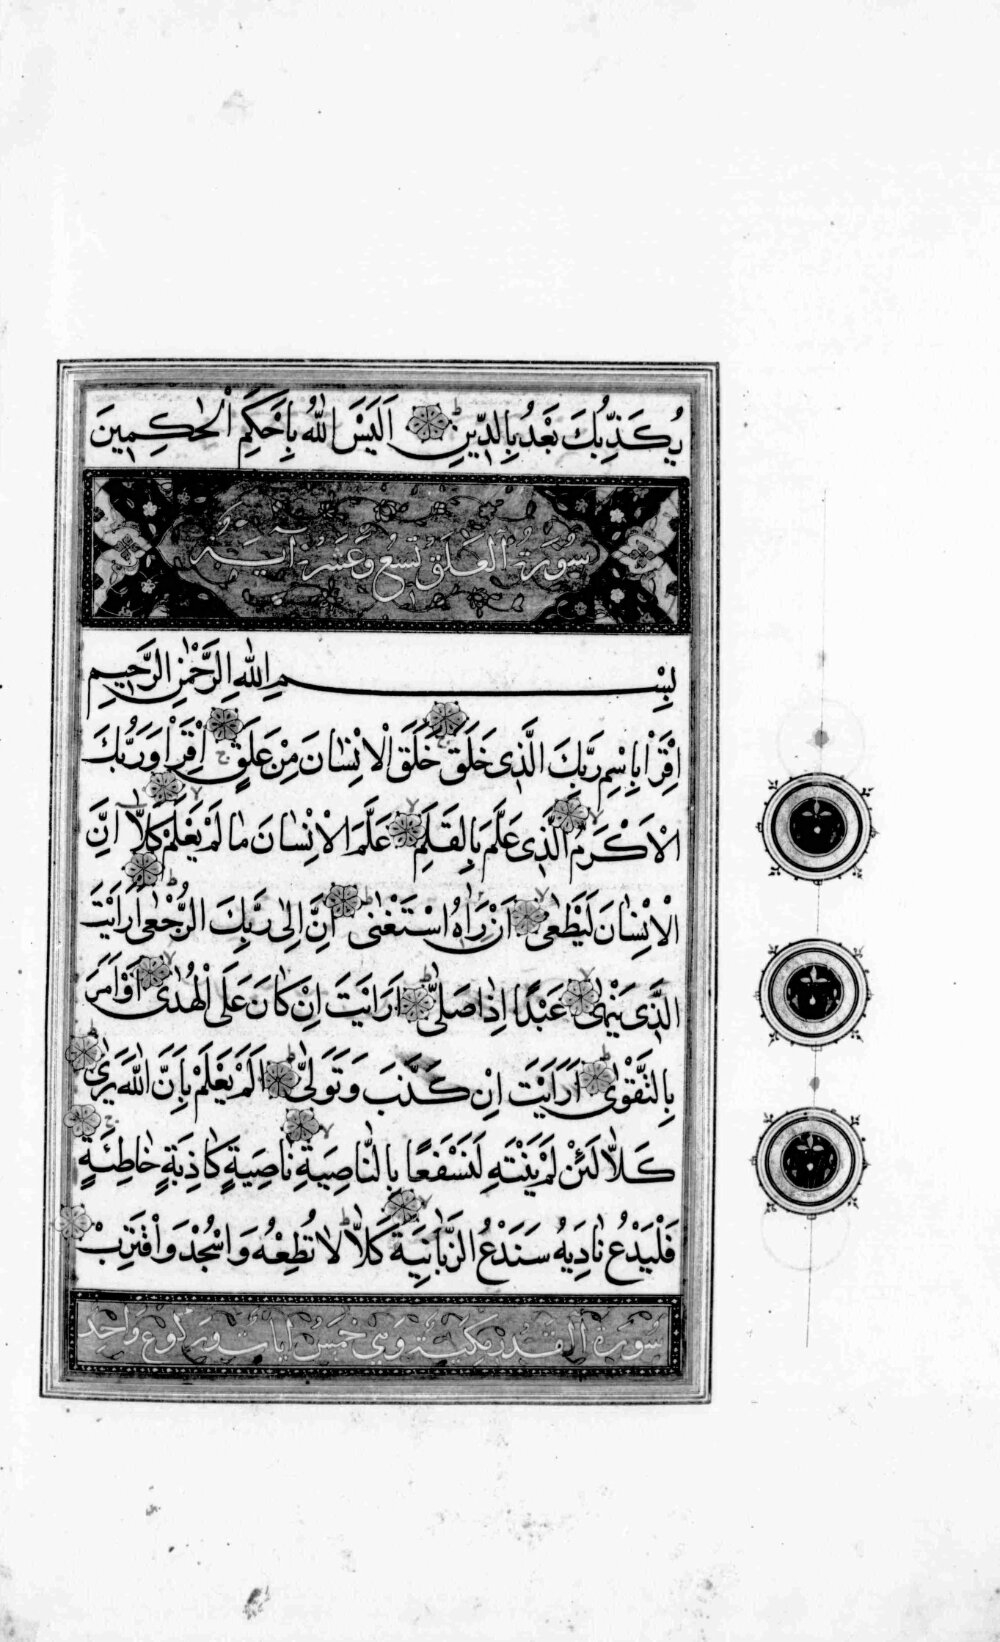 يُكَذِّبُكَ بَعْدُ بِالدِّينِ اَلَيْسَ اللّٰهُ بِاَحْكَمِ الْحٰكِمِينَ
سُورَةُ الْعَلَقِ تِسْعُ وَعَشَرُ اٰيَة
بِسْمِ اللّٰهِ الرَّحْمٰنِ الرَّحِيمِ
اِقْرَاْ بِاسْمِ رَبِّكَ الَّذِى خَلَقَ خَلَقَ الْاِنْسٰانَ مِنْ عَلَقٍ اِقْرَاْ وَرَبُّكَ
الْاَكْرَمُ الَّذِى عَلَّمَ بِالْقَلَمِ عَلَّمَ الْاِنْسٰانَ مٰا لَمْ يَعْلَمْ كَلّٰا اِنَّ
الْاِنْسٰانَ لَيَطْغىٰ اَنْ رَاٰهُ اسْتَغْنىٰ اِنَّ اِلىٰ رَبِّكَ الرُّجْعىٰ اَرَاَيْتَ
الَّذِى يَنْهىٰ عَبْدًا اِذٰا صَلّىٰ اَرَاَيْتَ اِنْ كٰانَ عَلَى الْهُدىٰ اَوْ اَمَرَ
بِالتَّقْوىٰ اَرَاَيْتَ اِنْ كَذَّبَ وَتَوَلّىٰ اَلَمْ يَعْلَمْ بِاَنَّ اللّٰهَ يَرىٰ
كَلّٰا لَئِنْ لَمْ يَنْتَهِ لَنَسْفَعًا بِالنّٰاصِيَةِ نٰاصِيَةٍ كٰاذِبَةٍ خٰاطِئَةٍ
فَلْيَدْعُ نٰادِيَهُ سَنَدْعُ الزَّبٰانِيَةَ كَلّٰا لٰا تُطِعْهُ وَاسْجُدْ وَاقْتَرِبْ
سُورَةُ الْقَدْرِ مَكِّيَّة وَهِيَ خَمْسُ اٰيات وَرُكُوع وٰاحِد